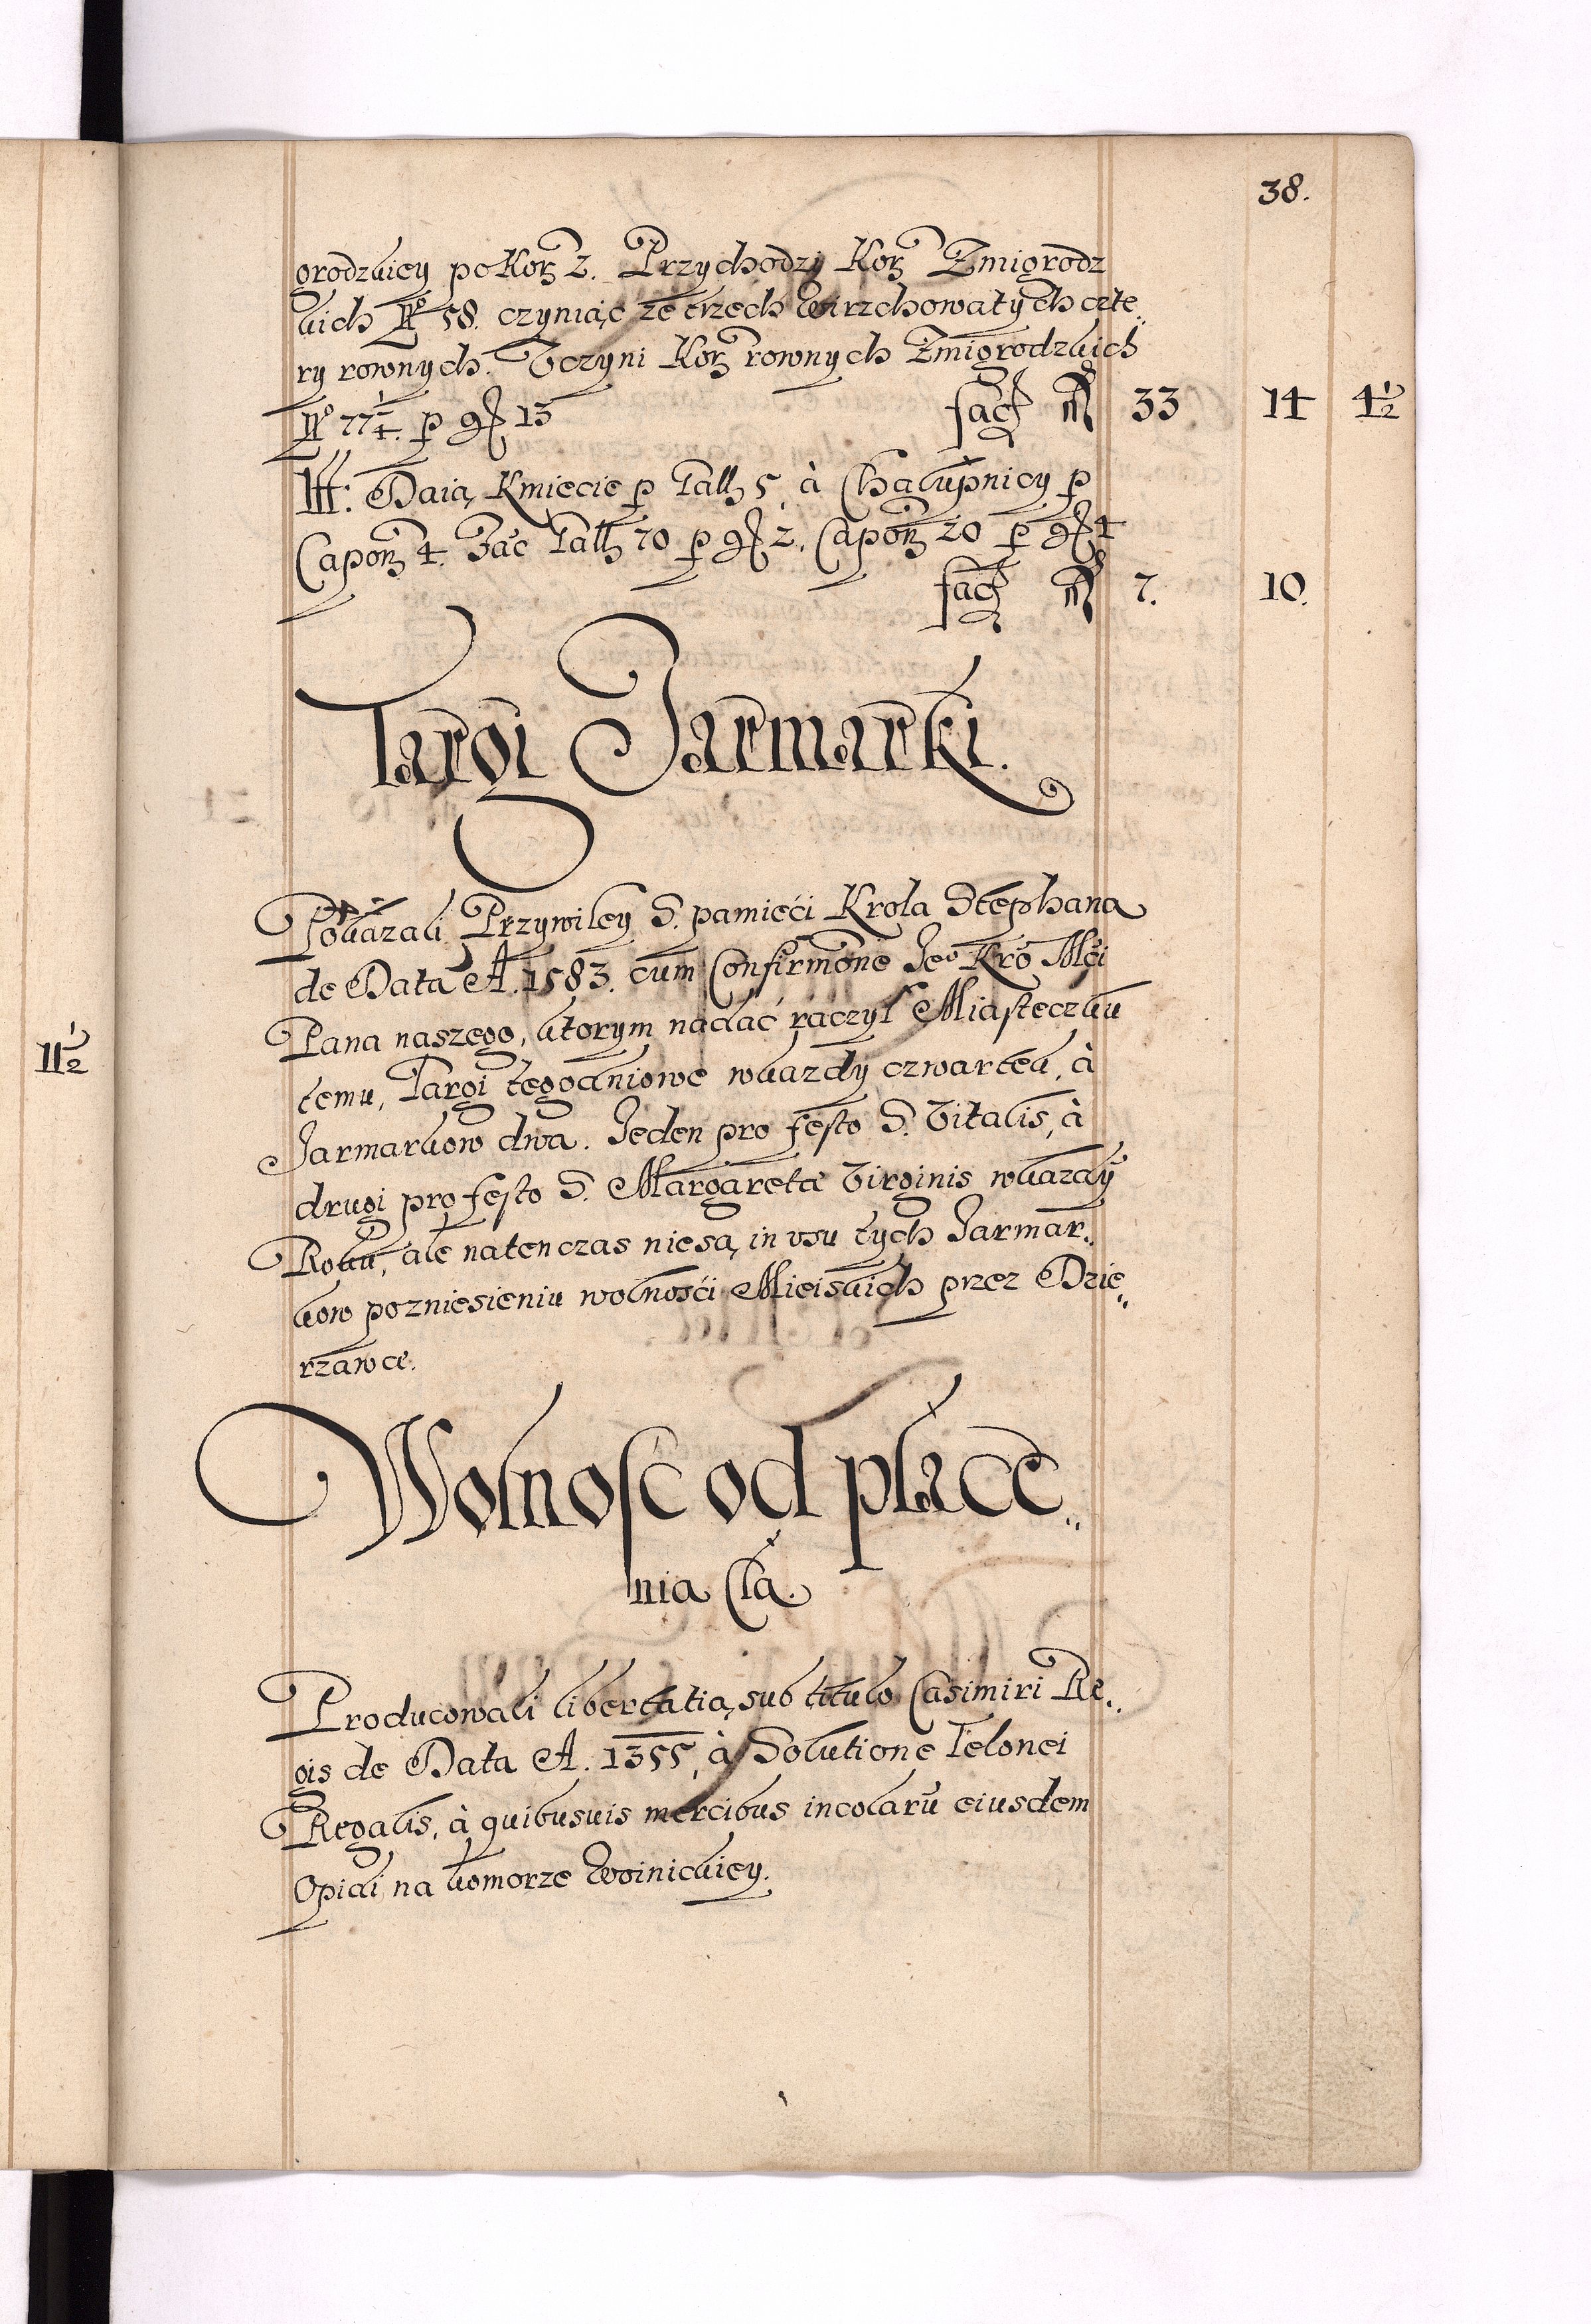 38.
grodzkiey po Korz 2. Przychodzi Korz Zmigrodz
kich No 58. czyniąc ze trzech wirzchowatych czte„
ry rownych. Vczyni Korz rownych Zmigrodzkich
No 77 1/4. p gr 13 facit fl 33 14 4 1/2
Itt: Daią Kmiecie p Gall 5, à Chałupnicy p
Capon 4. Fac Gall 70 p gr 2. Capon 20 p gr 4
facit fl 7. 10.
Targi Jarmarki.
Pokazali Przywiley S. pamięci Krola Stephana
de Data A. 1583. cum Confirmone Jeo Kro Mci
Pana naszego, ktorym nadać raczył Miasteczku
11 1/2
temu, Targi tegodniowe wkazdy czwartek, à
Jarmarkow dwa. Jeden pro festo S. Vitalis, à
drugi pro festo S. Margaretæ Virginis wkazdy
Roku, ale natenczas niesą in vsu tych Jarmar„
kow pozniesieniu wolnosći Mieiskich przez Dzie„
rzawce.
Wolnosc od płace„
nia Cła.
Producowali libertatią sub titulo Casimiri Re„
gis de Data A. 1355, à Solutione Telonei
Regalis, à quibusuis mercibus incolarū eiusdem
Opidi na komorze Woinickiey.